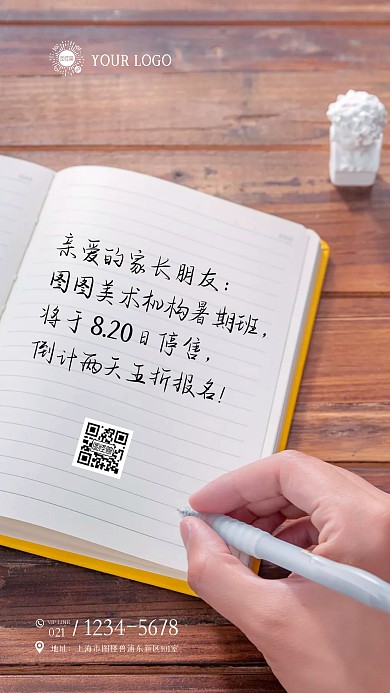 YOUR LOGO
亲爱的家长朋友：
图图美术机构暑期班，
将于 8.20 日停售，
倒计两天五折报名！
VIP LINE
021 / 1234-5678
地址：上海市图怪兽浦东新区901室